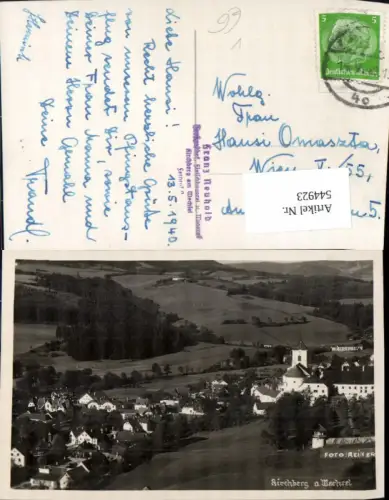 93
1
Liebe Hansi!
Recht herzliche Grüße
von unserem Pfingstaus-
flug sendet Dir, sowie
Deiner Frau Mama und
Deinem Herrn Gemahl
Deine Trudl.
Heinrich
13.5.1940.
Franz Neuhold
Kirchberg am Wechsel
5 5
Deutsches Reich
40
Wohlg.
Frau
Hansi Omaszta,
Wien
Artikel Nr.
544923
FOTO: REITER
Kirchberg a. Wechsel